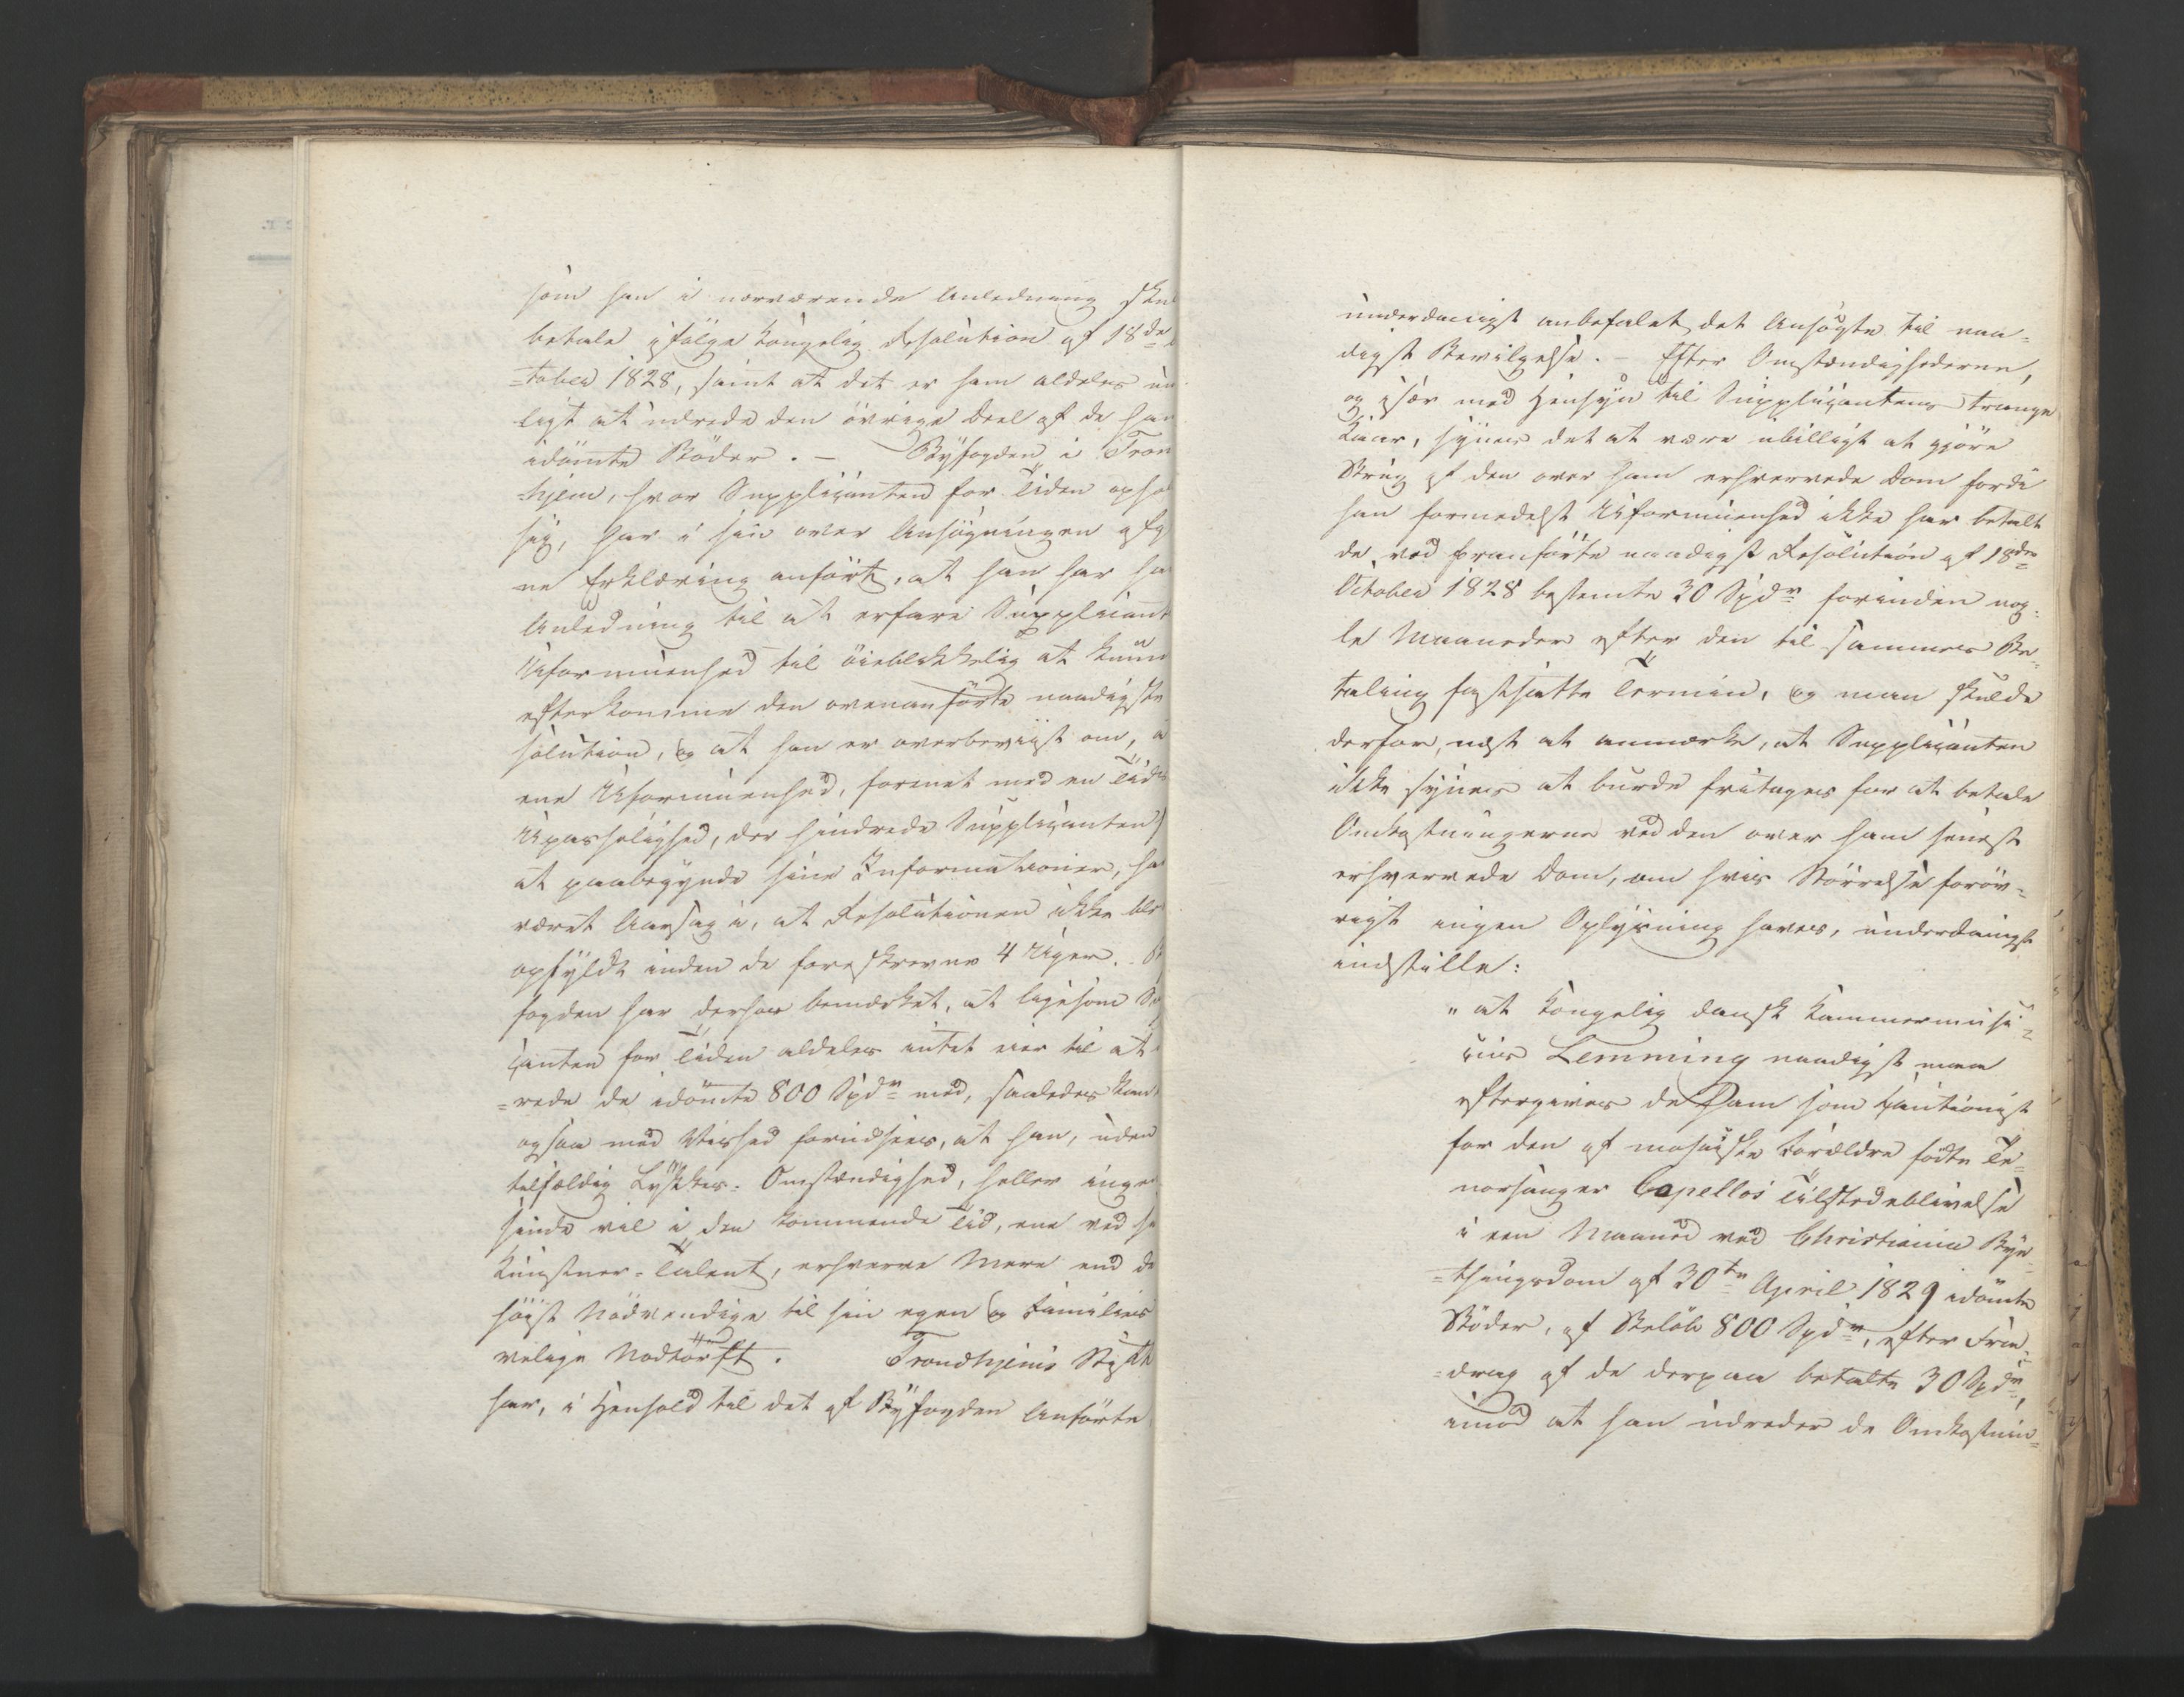 som han i nærværende Anledning skul
betale ifølge Kongelig Resolution af 18de
=tober 1828, samt at det er ham aldeles
ligt at udrede den øvrige Deel af de ham
idømte Bøder. – Byfogden i Tron
=hjem, hvor Supplicanten for Tiden opho
sig, har i sin over Ansøgningen afg
ne Erklæring anført, at han har ha
Anledning til at erfare Supplicant
Uformuenhed til øieblikkelig at kunne
efterkomme den ovenanførte naadigste
solution, og at han er overbeviist om, a
ene Uformuenhed, forenet med en Tids
Upasselighed, der hindrede Supplicanten
at paabegynde sine Informationer, ha
været Aarsag i, at Resolutionen ikke ble
opfyldt inden de foreskrevne 4 Uger.
fogden har derhos bemærket, at ligesom
canten for Tiden aldeles intet eier til at
=rede de idømte 800 Spdr med, saaledes kan
ogsaa med Vished forudsees, at han, uden
tilfældig Lykkes-Omstændighed, heller inge
sinde vil i den kommende Tid, ene ved
Kunstner-Talent, erhverve Mere end de
høist Nødvendige til sin egen og Families
Nødtørft. Trondhjems Stift
har, i Henhold til det af Byfogden Anførte
underdanigst anbefalet det Ansøgte til naa-
digst Bevilgelse. – Efter Omstændighederne,
og især med Hensyn til Supplicantens trange
Kaar, synes det at være ubilligt at gjøre
Brug af den over ham erhvervede Dom fordi
han formedelst Uformuenhed ikke har betalt
de ved fremførte naadigst Resolution af 18de
October 1828 bestemte 30 Spdr forinden nog-
le Maaneder efter den til sammes Be-
taling fastsatte Termin, og man skulde
derfor, næst at anmærke, at Supplicanten
ikke synes at burde fritages for at betale
Omkostningerne ved den over ham senest
erhvervede Dom, om hvis Størrelse forøv-
rigt ingen Oplysning haves, underdanigst
indstille:
"at Kongelig dansk Kammermusi-
cus Lemming naadigst maa
eftergives de ham som Cautionist
for den af mosaiske Forældre fødte Te-
norsanger Capellos Tilstedeblivelse
i een Maaned ved Christiania Bye
=thingsdom af 30te April 1829 idømte
Bøder, af Beløb 800 Spdr, efter Fra-
=drag af de derpaa betalte 30 Spdr,
imod at han udreder de Omkostnin-